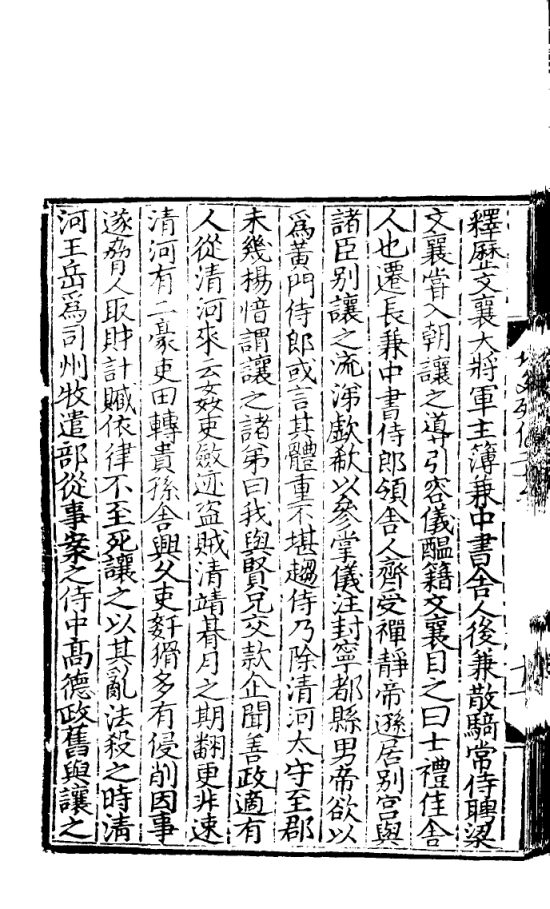 釋歷文襄大將軍主簿兼中書舍人後兼散騎常侍聘梁
文襄嘗入朝讓之導引容儀醞籍文襄目之曰士禮佳舍
人也遷長兼中書侍郎領舍人齊受禪靜帝遜居別宮與
諸臣別讓之流涕歔欷以參掌儀注封寧都縣男帝欲以
爲黃門侍郎或言其體重不堪趨侍乃除清河太守至郡
未幾楊愔謂讓之諸弟曰我與賢兄交款企聞善政適有
人從清河來云姦吏斂迹盜賊清靖朞月之期翻更非速
清河有二豪吏田轉貴孫舍興久吏姧猾多有侵削因事
遂脅人取財計贓依律不至死讓之以其亂法殺之時清
河王岳爲司州牧遣部從事案之侍中高德政舊與讓之